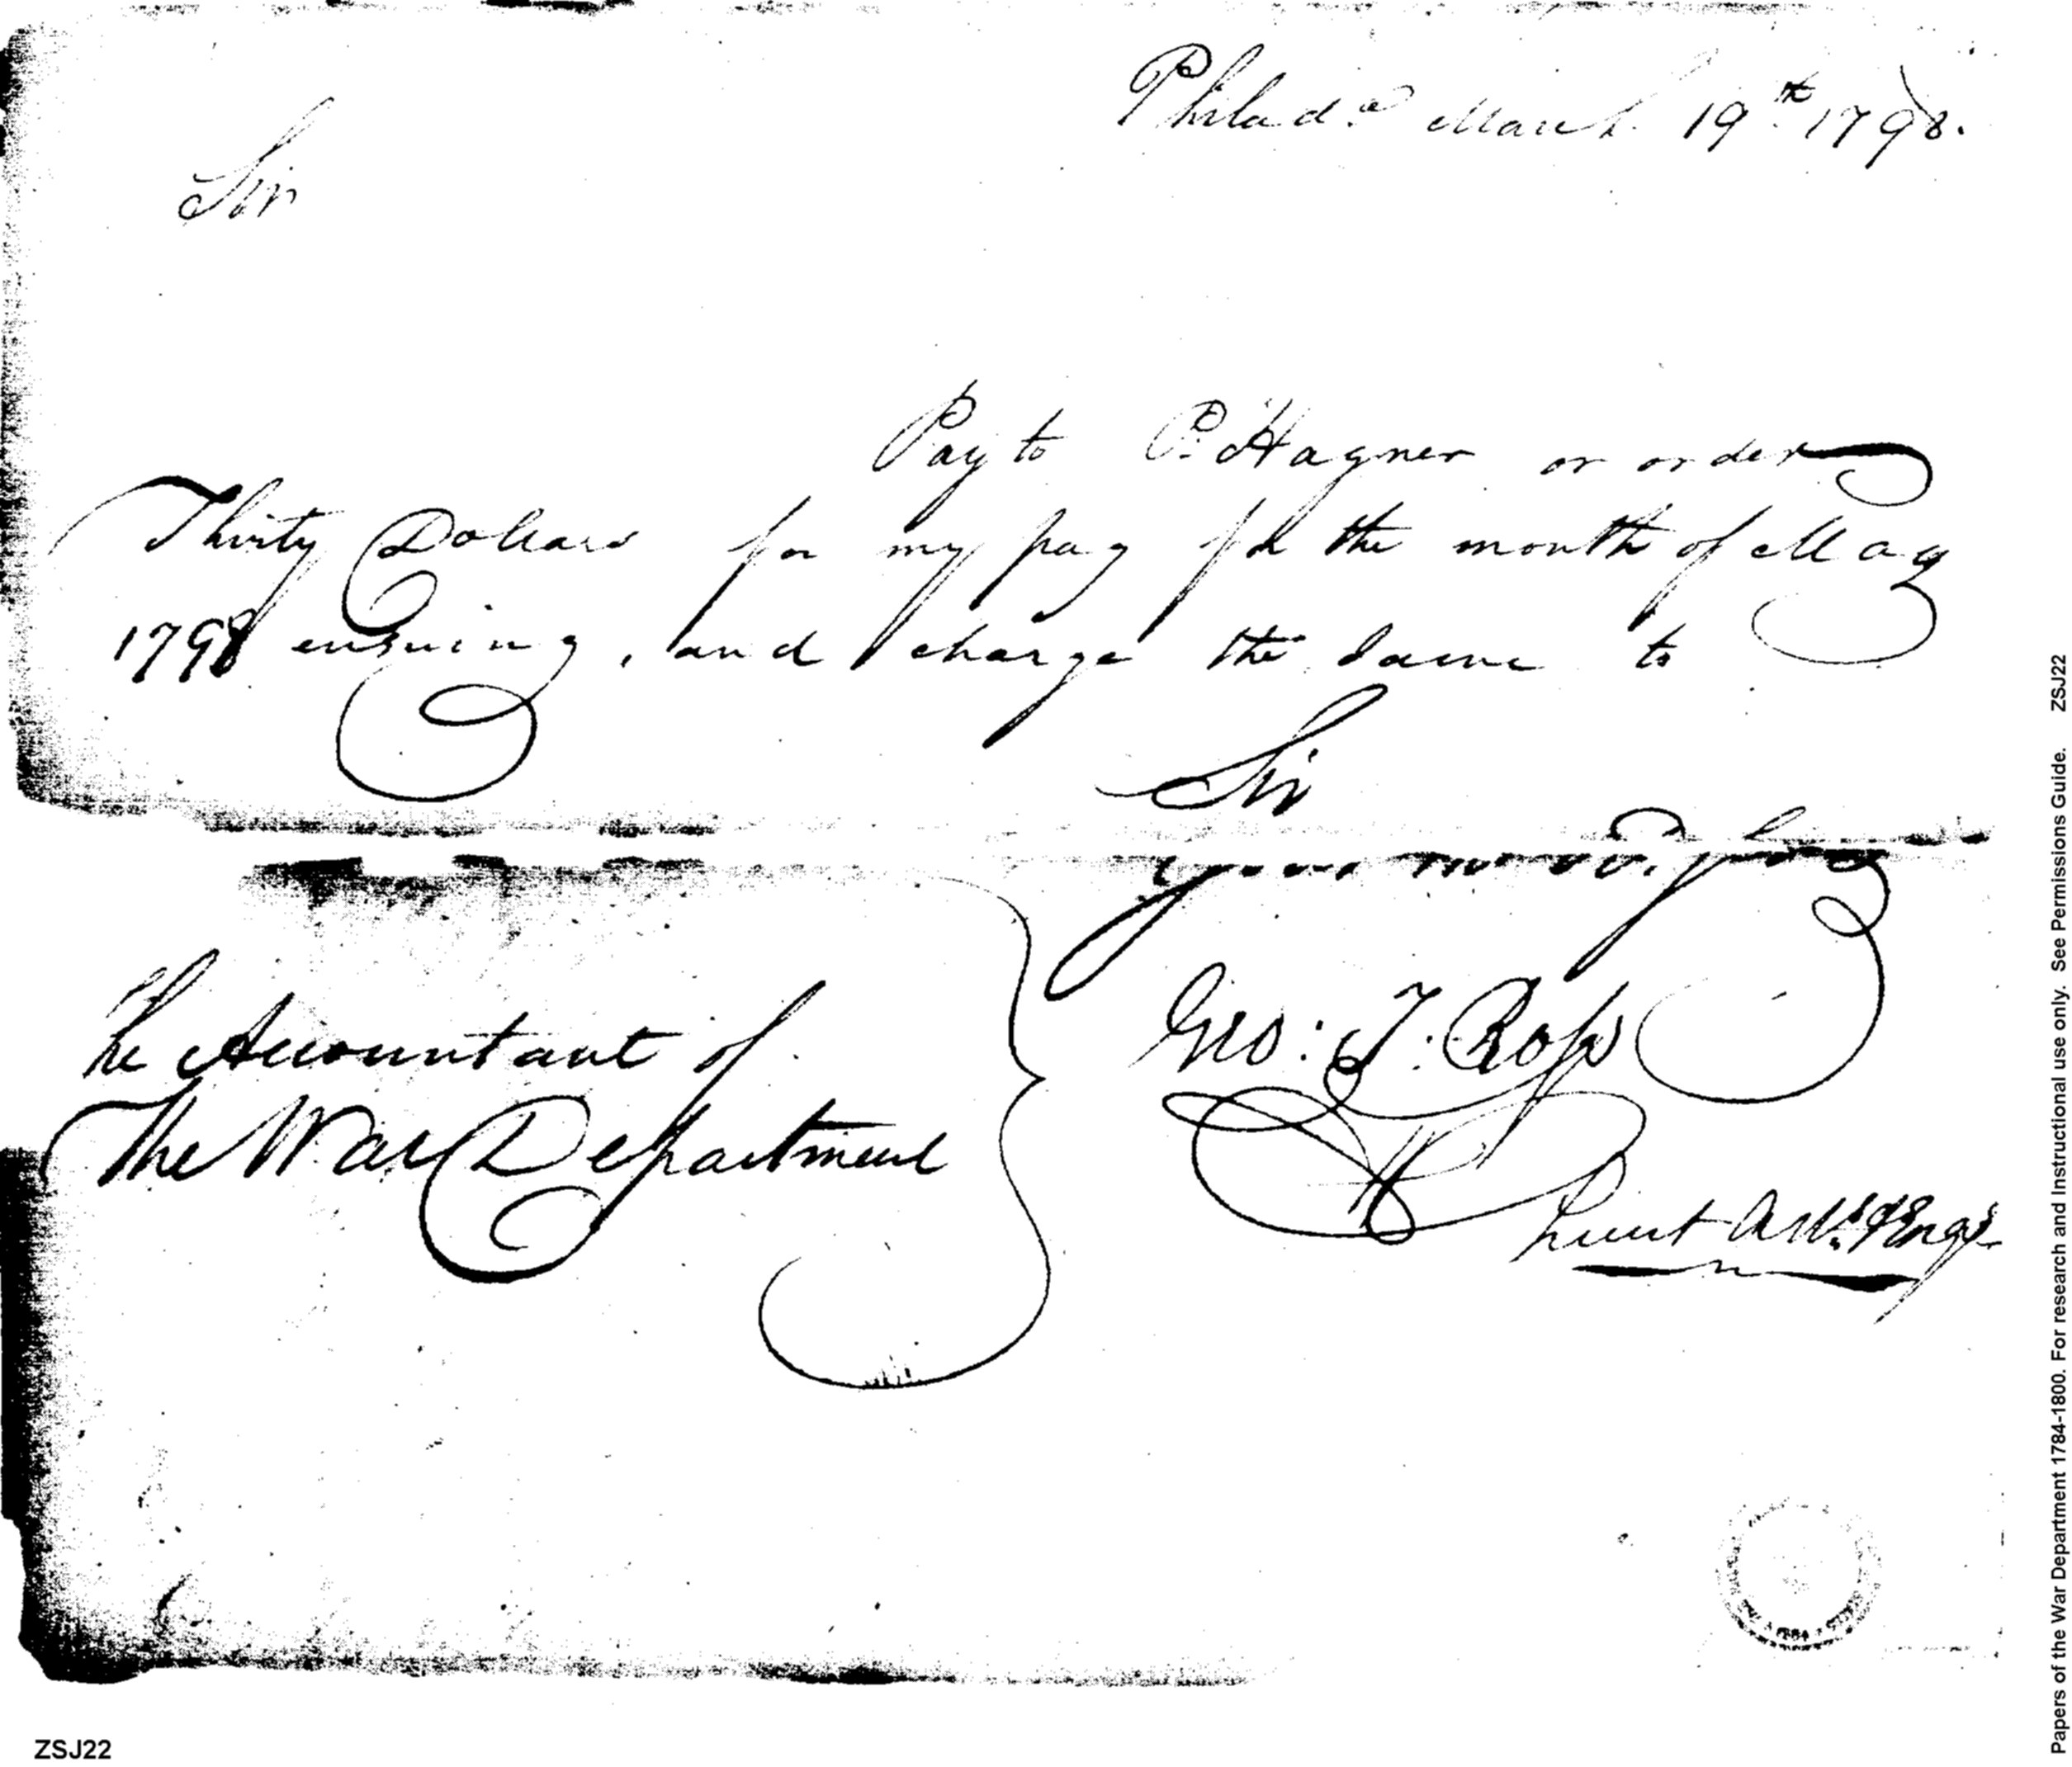 Philad.ª March 19th 1798.
Sir
Pay to P. Hagner or order
Thirty Dollars for my pay for the month of May
1798 ensuing, and charge the same to
Sir
your mo. ob.
Geo: T: Ross
Lieut Art. & Engrs
The Accountant of
The War Department
ZSJ22
Papers of the War Department 1784-1800. For research and Instructional use only. See Permissions Guide. ZSJ22